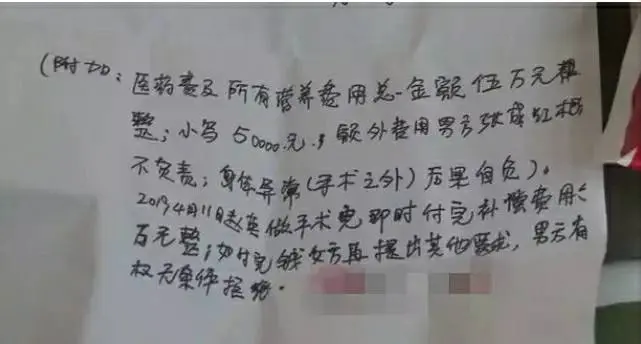 (附加:医药费及所有营养费用总一金额伍万元
整;小写50000元;额外费用男方张成红概
不负责;身体异常(手术之外)后果自负)。
2019年4月11日赵英做手术完即时付完补偿费用
万元整;如付完钱女方再提出其他要求,男方有
权无条件拒绝。